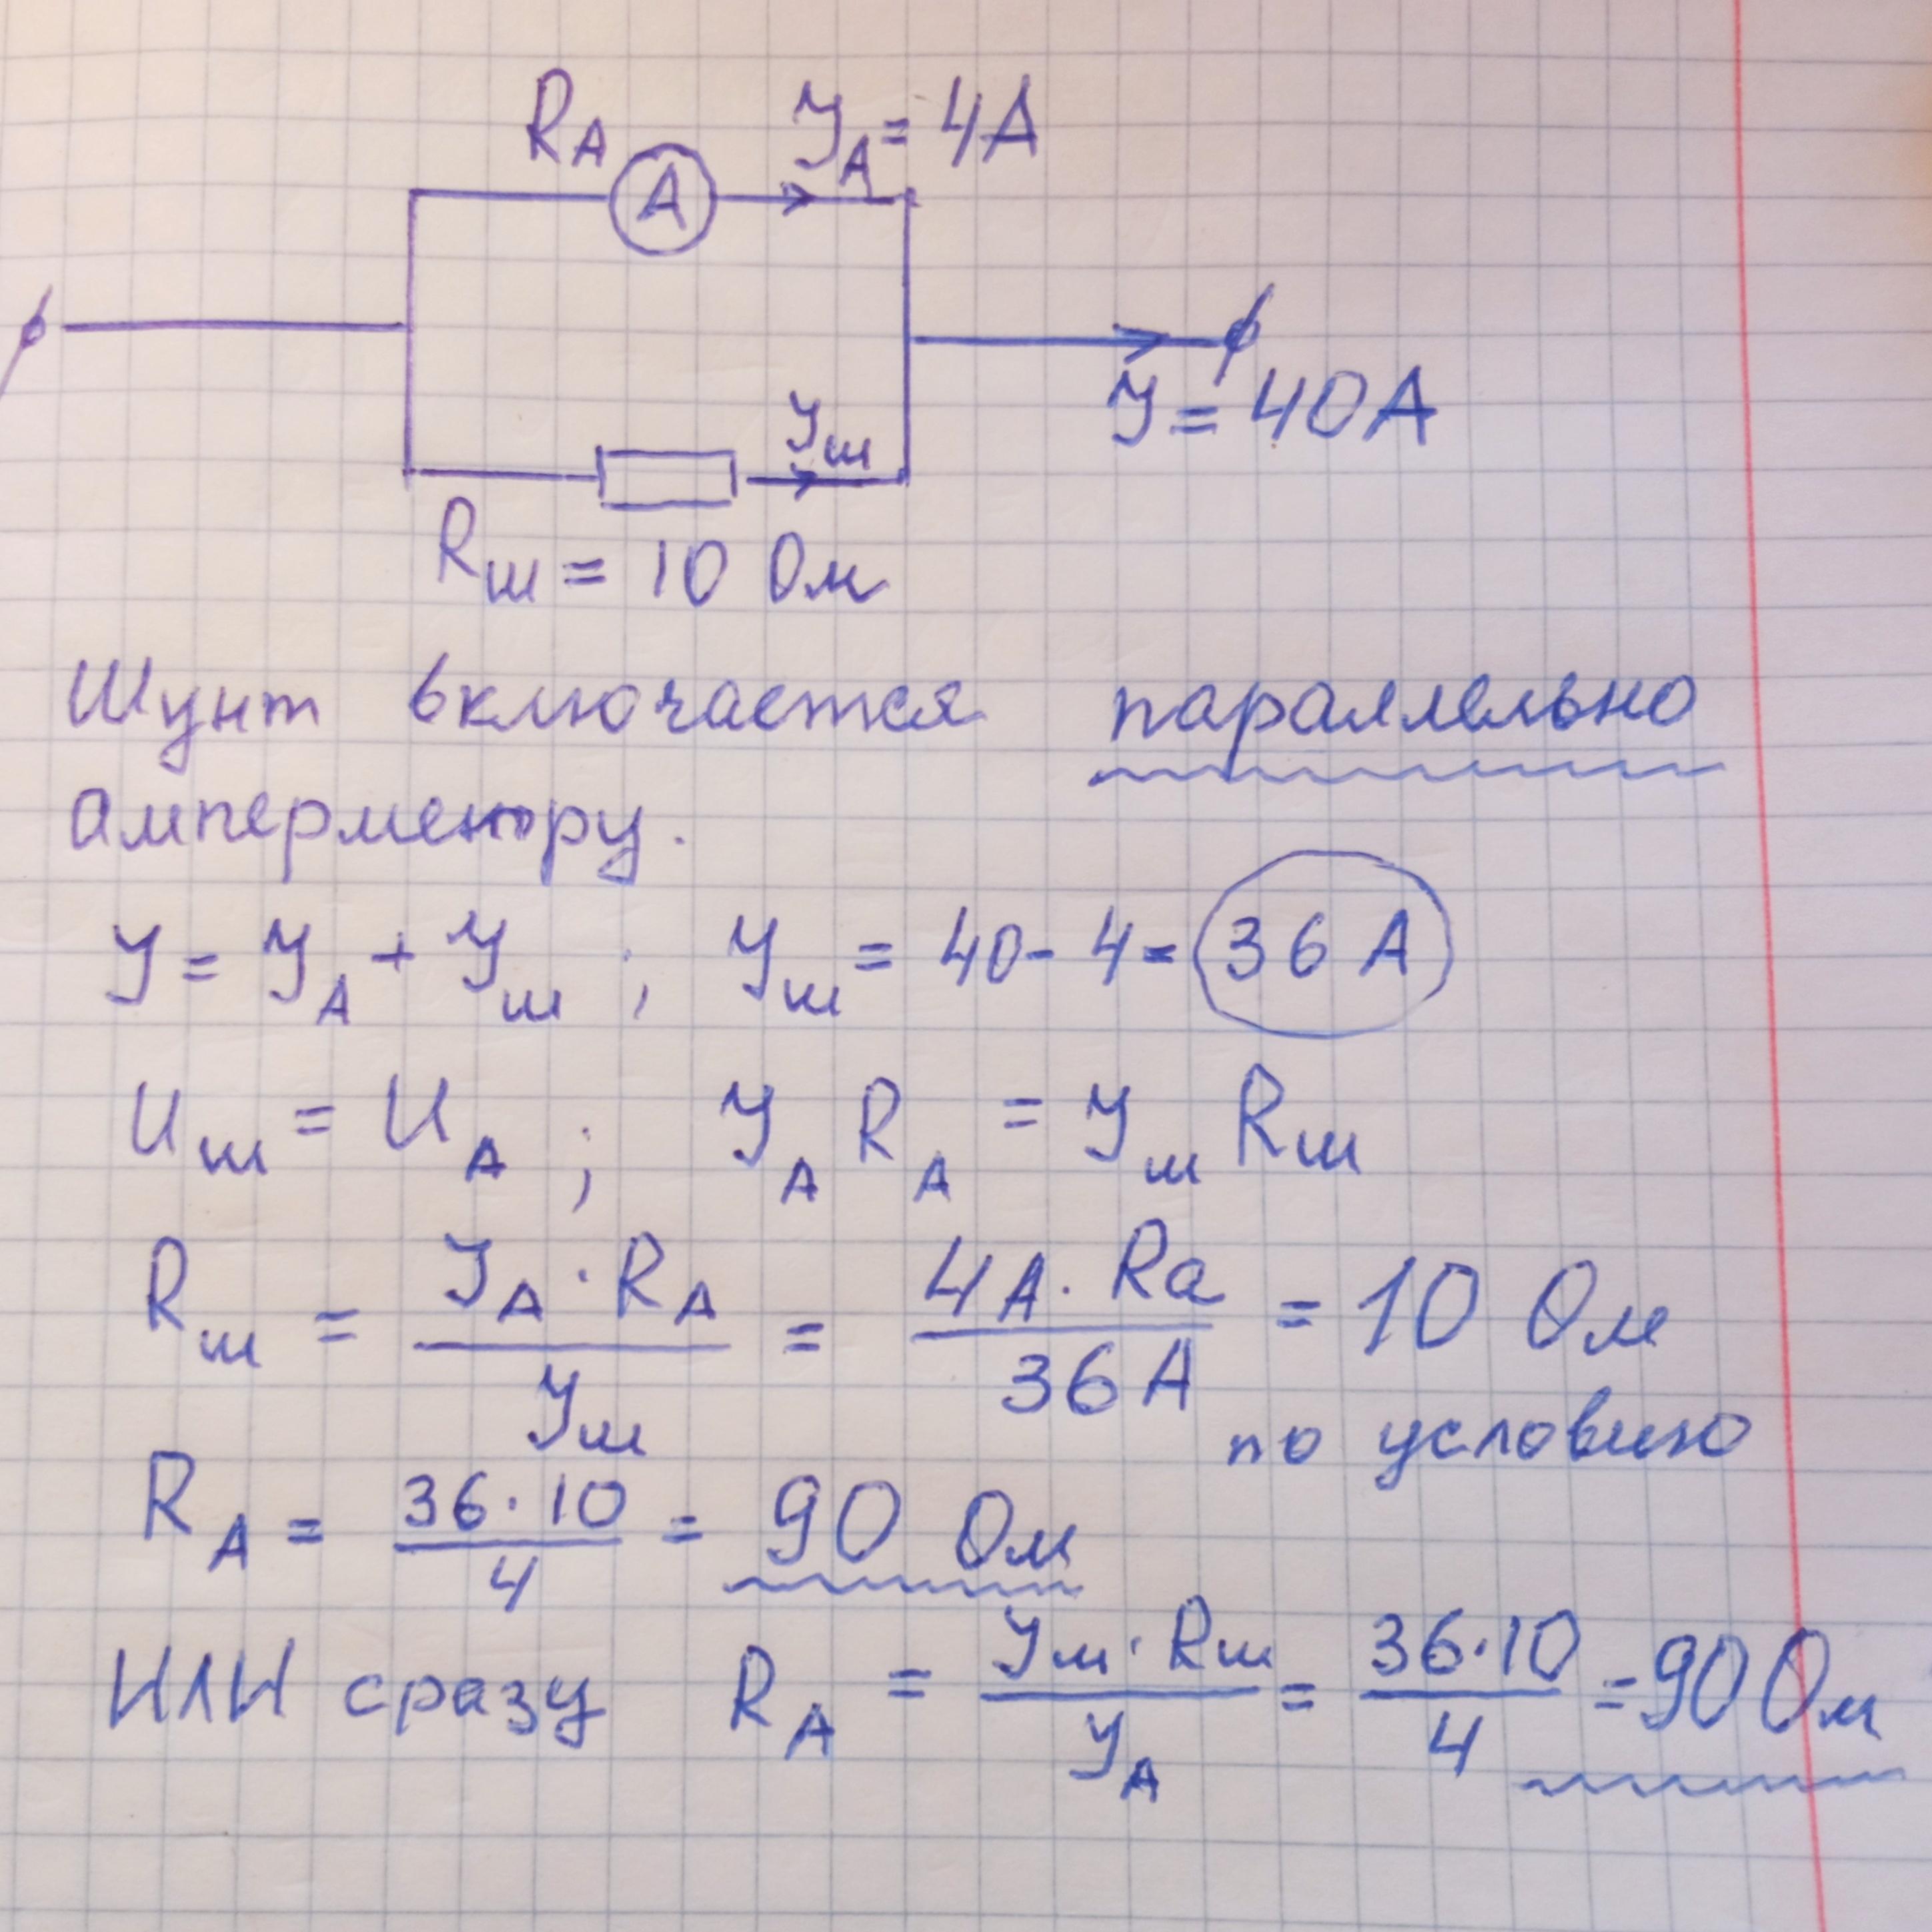 R_A У_A = 4А
А
У_ш
У = 40А
R_ш = 10 Ом
Шунт включается параллельно
амперметру.
У = У_A + У_ш ; У_ш = 40 - 4 = 36 А
U_ш = U_A ; У_A R_A = У_ш R_ш
R_ш = У_A · R_A / У_ш = 4А · Ra / 36А = 10 Ом
по условию
R_A = 36 · 10 / 4 = 90 Ом
ИЛИ сразу R_A = У_ш · R_ш / У_A = 36 · 10 / 4 = 90 Ом